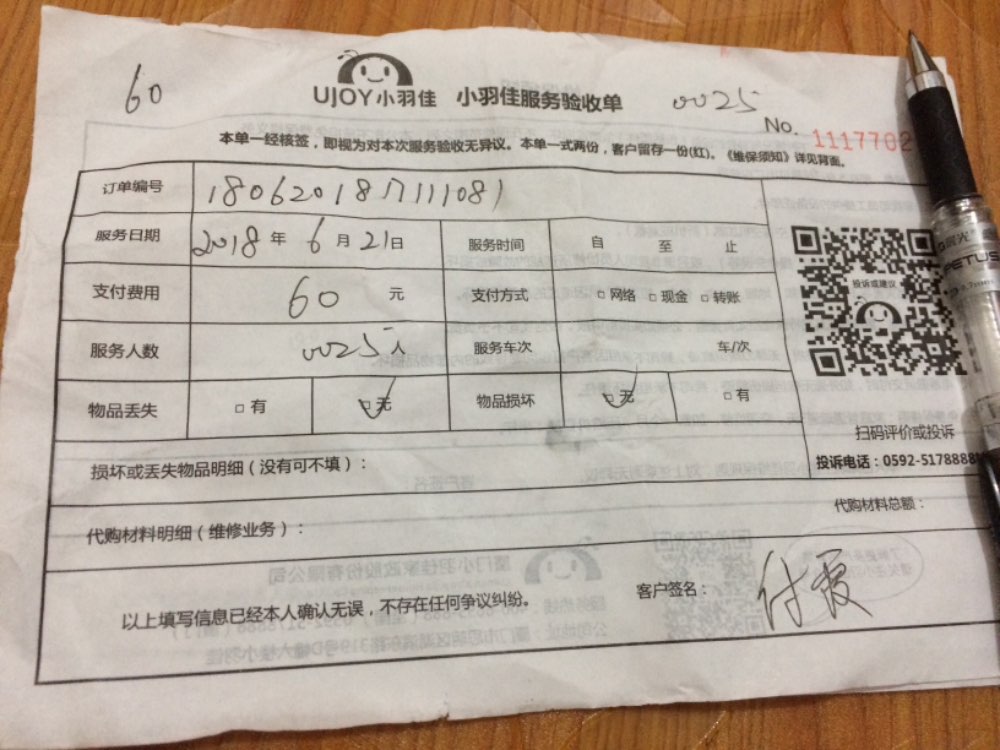 60
UJOY小羽佳 小羽佳服务验收单 0025
No. 1117702
本单一经核签，即视为对本次服务验收无异议。本单一式两份，客户留存一份(红)。《维保须知》详见背面。
订单编号 180620181711081
服务日期 2018年6月21日 服务时间 自 至 止
支付费用 60 元 支付方式 □网络 □现金 □转账
服务人数 0025人 服务车次 车/次
物品丢失 □有 □无 物品损坏 □无 □有
投诉或建议
扫码评价或投诉
投诉电话：0592-5178888
损坏或丢失物品明细（没有可不填）：
代购材料明细（维修业务）： 代购材料总额：
以上填写信息已经本人确认无误，不存在任何争议纠纷。 客户签名： 付爱